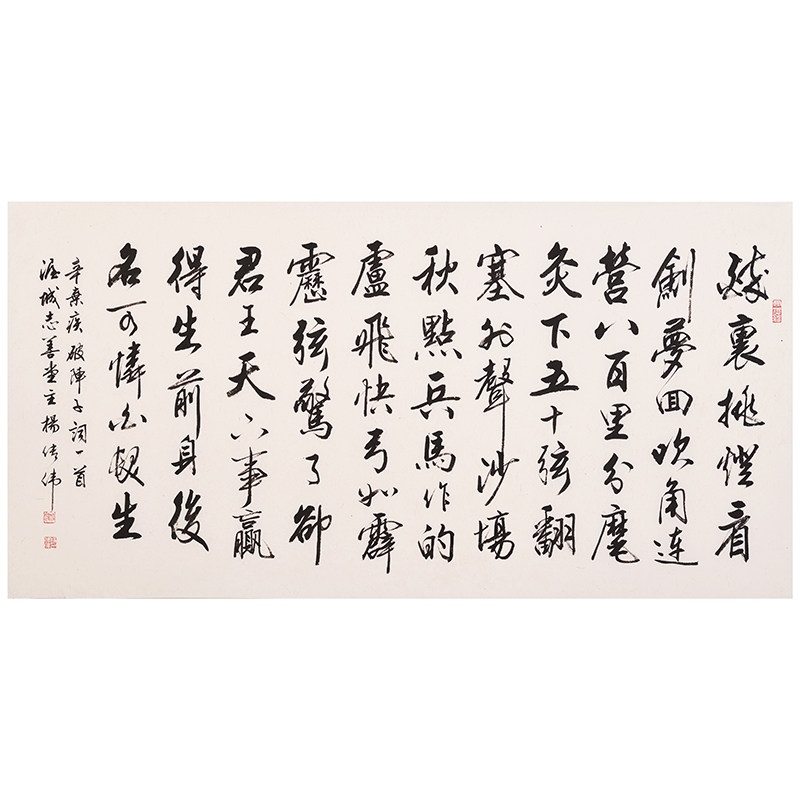 醉裏挑燈看
劍夢回吹角連
營八百里分麾
炙下五十弦翻
塞外聲沙場
秋點兵馬作的
盧飛快弓如霹
靂弦驚了卻
君王天下事贏
得生前身後
名可憐白髮生
辛棄疾破陣子詞一首
渥城志善堂主楊傳偉